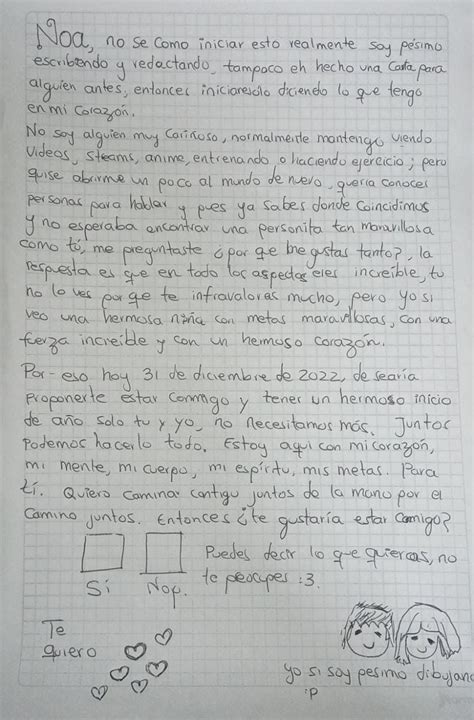 Noa, no se como iniciar esto realmente soy pésimo
escribiendo y redactando, tampoco eh hecho una carta para
alguien antes, entonces iniciaresolo diciendo lo que tengo
en mi corazón.
No soy alguien muy cariñoso, normalmente mantengo viendo
videos, steams, anime, entrenando o haciendo ejercicio; pero
quise abrirme un poco al mundo de nuevo, quería conocer
personas para hablar y pues ya sabes donde coincidimos
y no esperaba encontrar una personita tan maravillosa
como tú, me preguntaste ¿por que me gustas tanto?, la
respuesta es que en todo los aspectos eres increíble, tu
no lo ves por que te infravaloras mucho, pero yo si
veo una hermosa niña con metas maravillosas, con una
fuerza increíble y con un hermoso corazón.
Por-eso hoy 31 de diciembre de 2022, desearía
proponerte estar conmigo y tener un hermoso inicio
de año solo tu y yo, no necesitamos más. Juntos
podemos hacerlo todo. Estoy aqui con mi corazón,
mi mente, mi cuerpo, mi espíritu, mis metas. Para
tí. Quiero caminar contigo juntos de la mano por el
camino juntos. Entonces ¿te gustaría estar comigo?
Puedes decir lo que quieras, no
te preocupes :3.
Sí Nop.
Te
quiero
yo si soy pesimo dibujand
:p